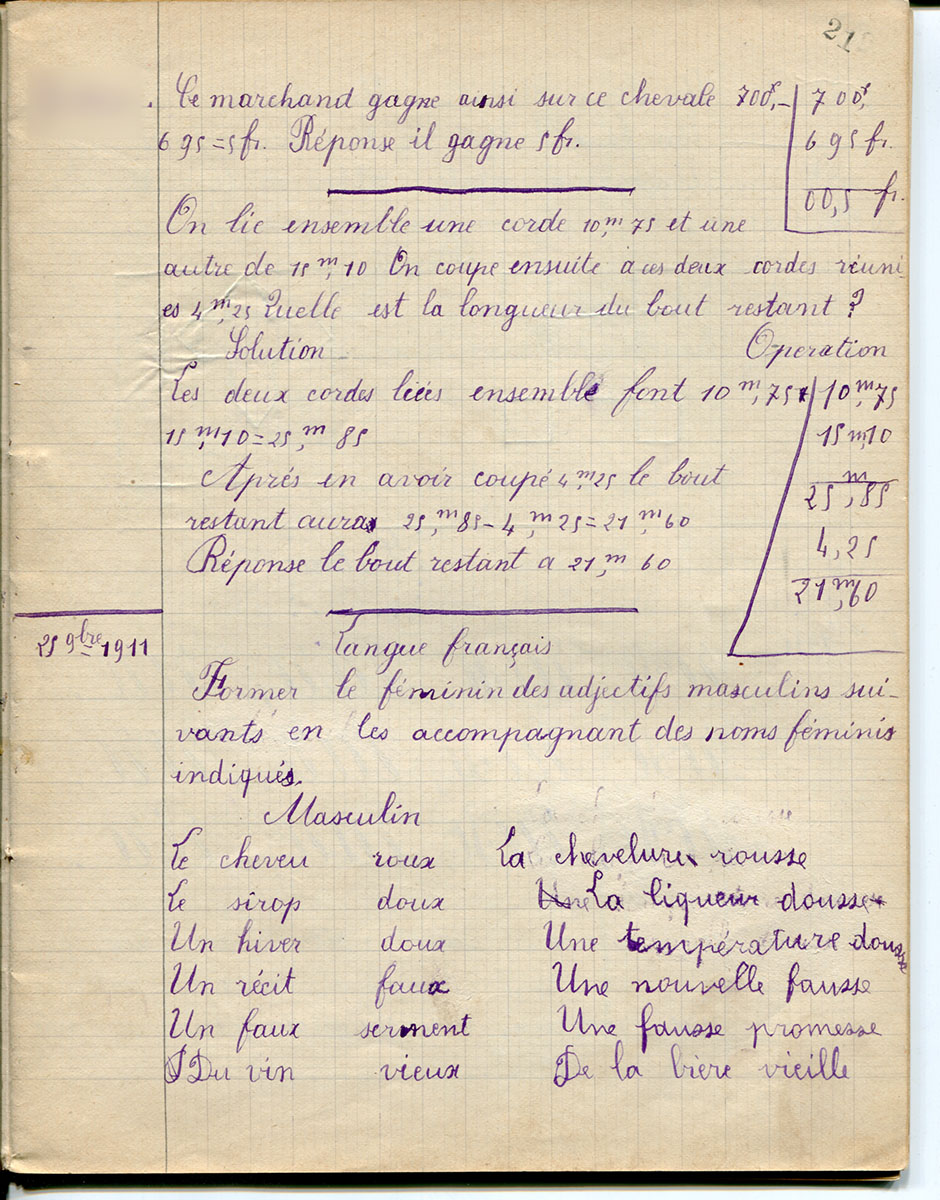 21
Ce marchand gagne ainsi sur ce chevale 700f,-
6 95 = 5 fr. Réponse il gagne 5 fr.
700f,
695 fr.
00,5 fr.
On lie ensemble une corde 10,m 75 et une
autre de 15 m, 10 On coupe ensuite a ces deux cordes réuni
es 4 m, 25 Quelle est la longueur du bout restant ?
Solution
Operation
Les deux cordes liées ensemble font 10 m, 75 +
15 m, 10 = 25, m 85
Aprés en avoir coupé 4,m 25 le bout
restant aura 25, m 85 - 4, m 25 = 21 m, 60
Réponse le bout restant a 21, m 60
10 m, 75
15 m, 10
25 m, 85
4, 25
21 m, 60
25 9bre 1911
Langue français
Former le féminin des adjectifs masculins sui-
vants en les accompagnant des noms féminis
indiqués.
Masculin
Le cheveu roux La chevelure rousse
Le sîrop doux Une La liqueur dousse
Un hiver doux Une température dousse
Un récit faux Une nouvelle fausse
Un faux serment Une fausse promesse
Du vin vieux De la bière vieille